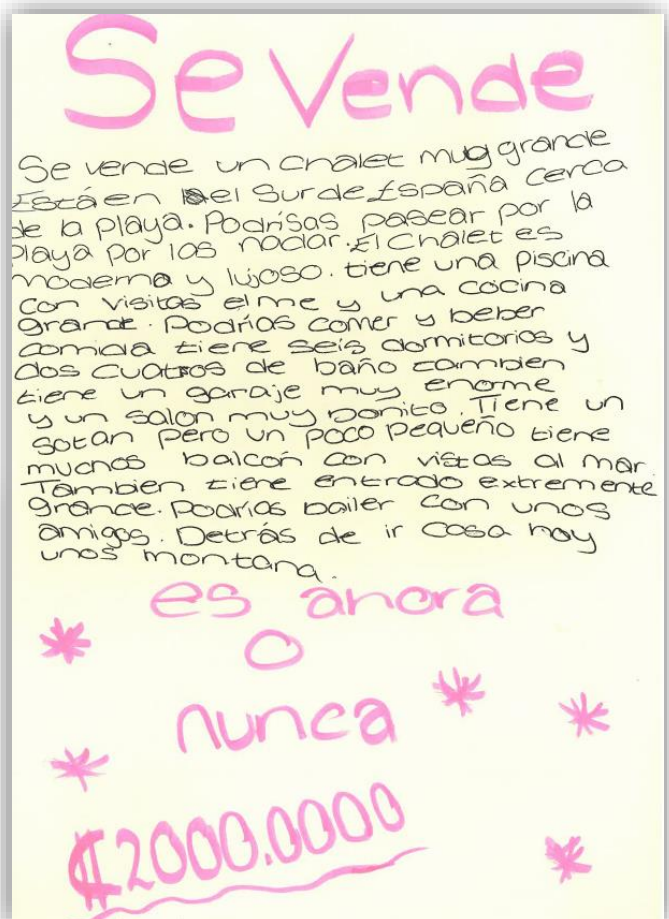 Se Vende
Se vende un chalet muy grande
Está en el Sur de España cerca
de la playa. Podrísas pasear por la
Playa por las nodar. El Chalet es
moderna y lujoso. tiene una piscina
con visitas elme y una cocina
grande. Podríos comer y beber
comida tiene seis dormitorios y
dos cuatros de baño tambien
tiene un garaje muy enorme
y un salon muy bonito. Tiene un
sotan pero un poco pequeño tiene
muchos balcón con vistas al mar.
Tambien tiene entrado extremente
grande. Podrías bailer con unos
amigos. Detrás de ir casa hay
unos montana.
es ahora
o
nunca
₡2000.0000